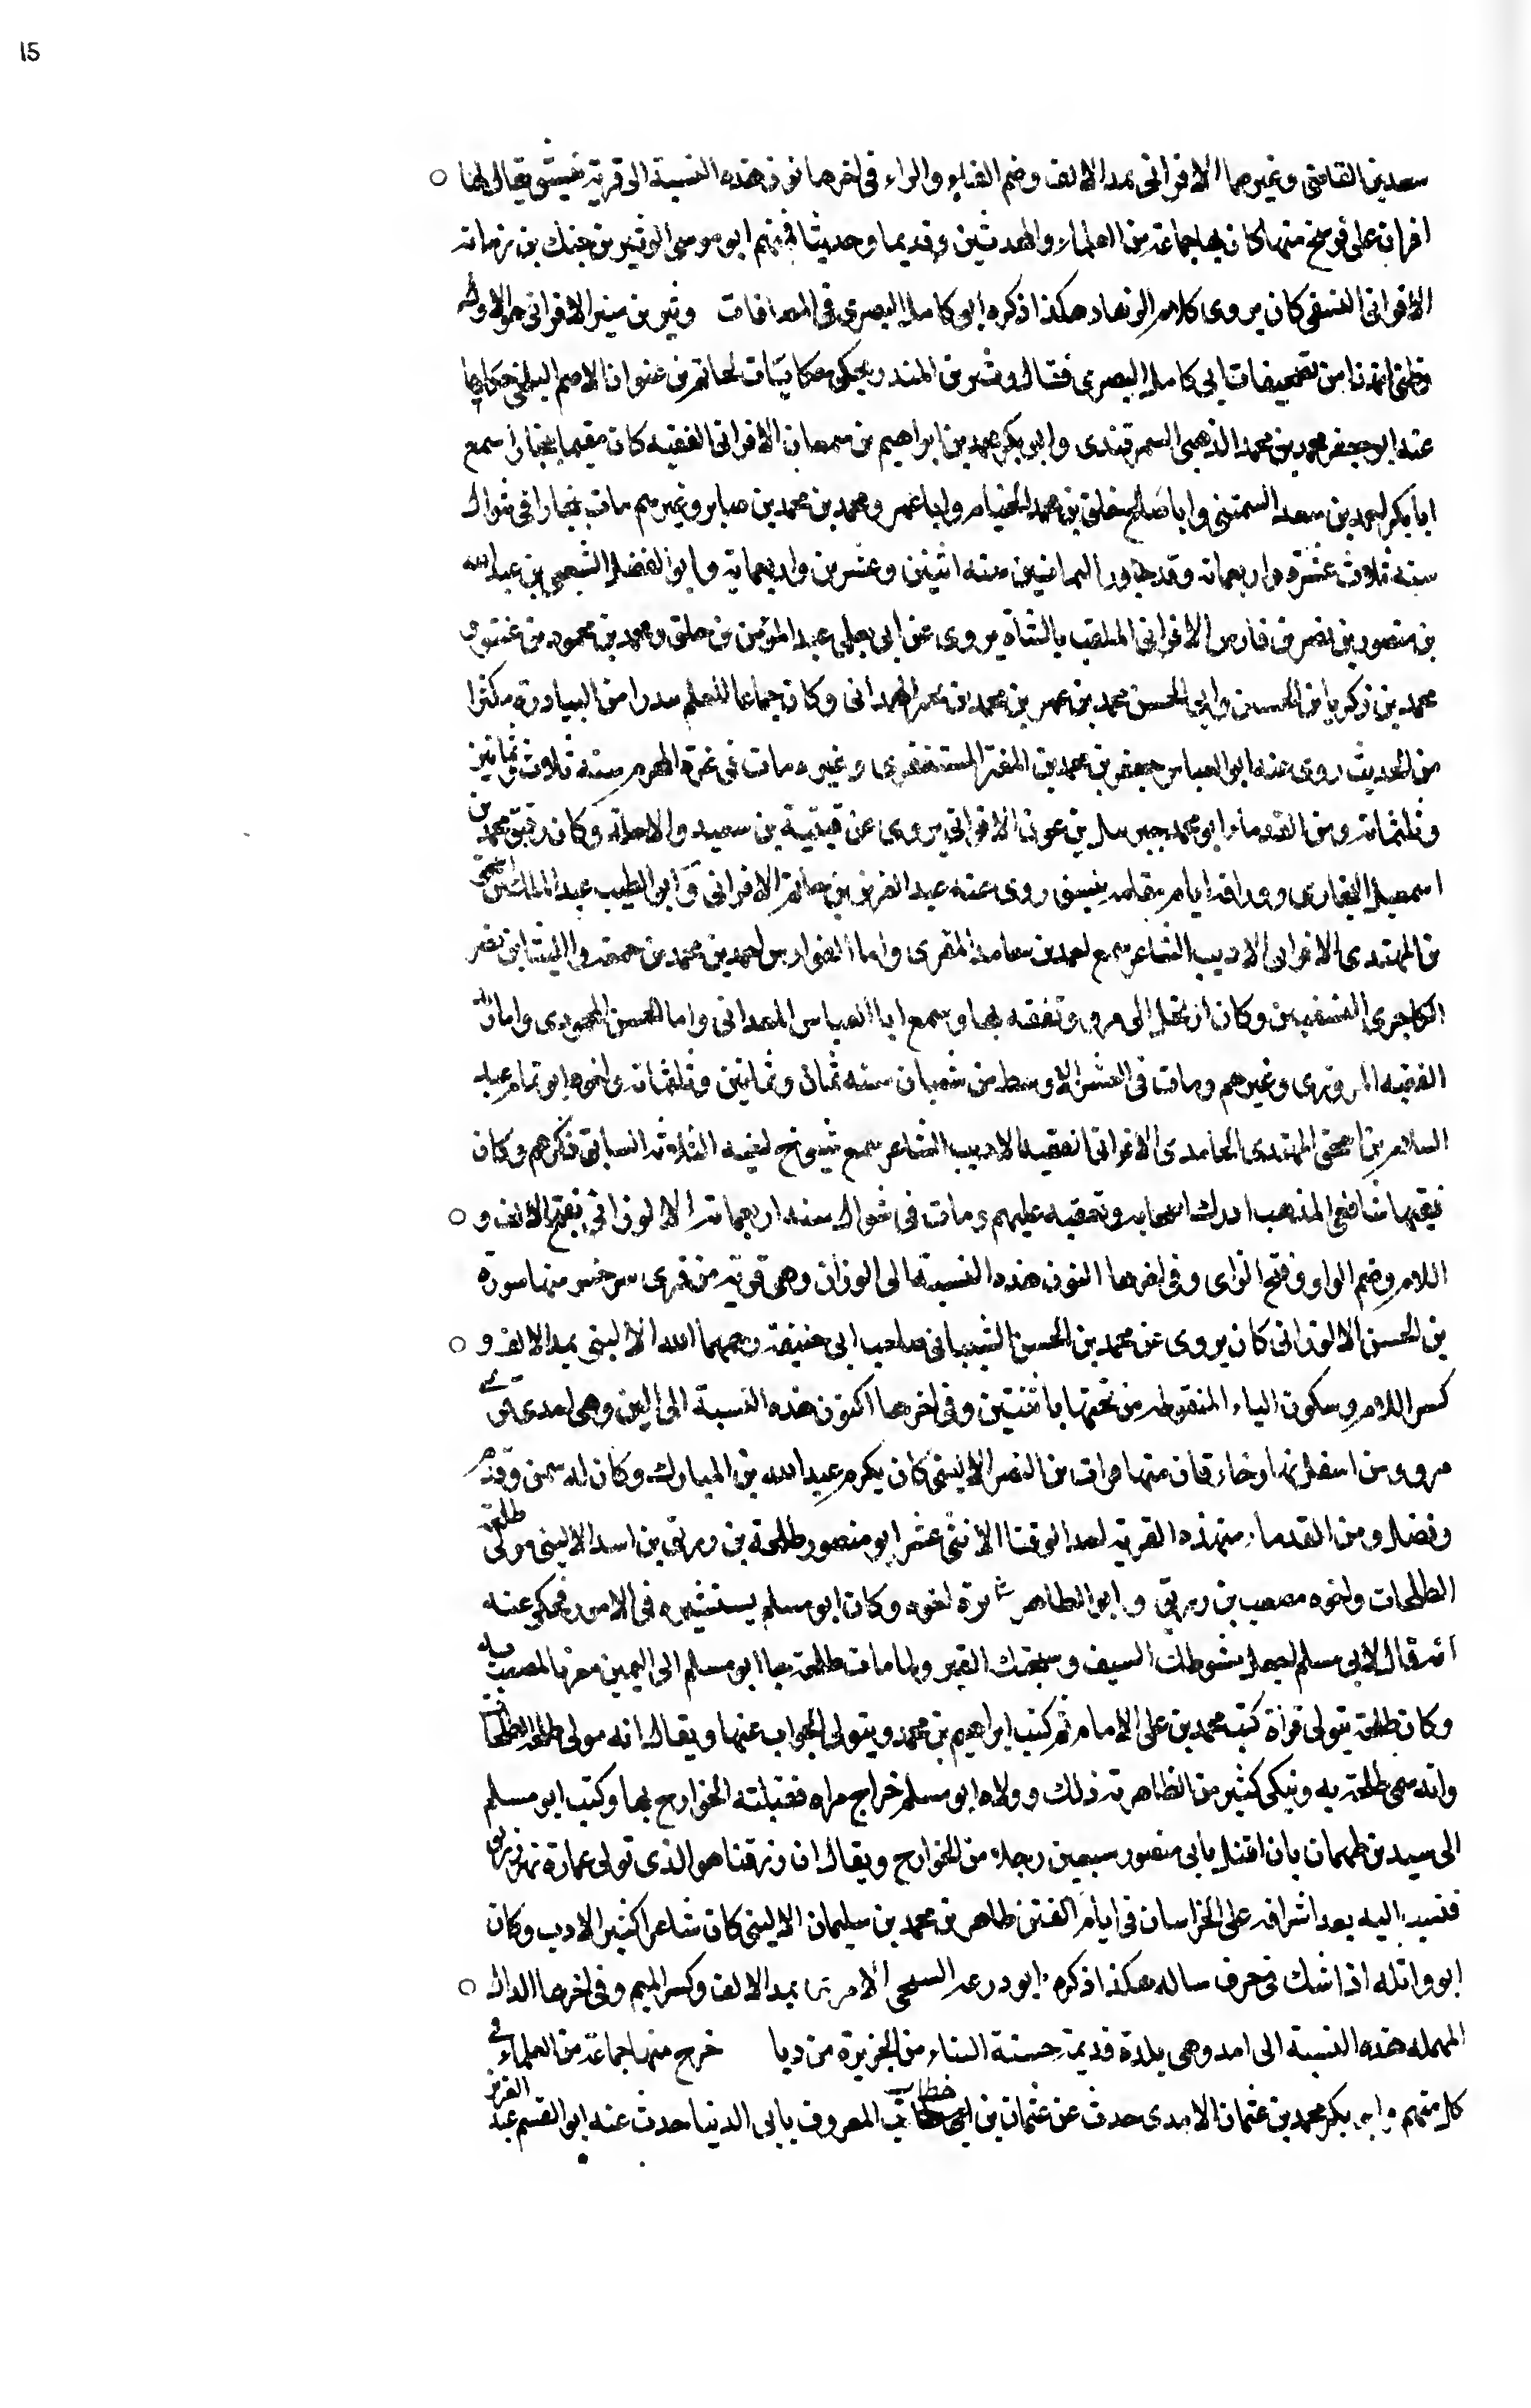 15
سعد بن القاضى وغيرهما الافرانى بمد الالف وضم الفاء والراء فى اخرها نون هذه النسبة الى قرية بنسف يقال لها
افران على فرسخ منها كان بها جماعة من العلماء والمحدثين وقديما وحديثا فمنهم ابو موسى الوثير بن جنك بن زمانه
الافرانى النسفى كان يروى كلام الزهاد هكذا ذكره ابو كامل البصرى فى المضافات وثير بن منير الافرانى هو الاول
وظنى ان هذا من تصحيفات ابى كامل البصرى فقال وثير بن المنذر يحكى حكايات لحاتم بن عنوان الاصم البلخى حكاها
عنه ابو جعفر محمد بن محمد الذهبى السمرقندى وابو بكر محمد بن ابراهيم بن سمعان الافرانى الفقيه كان مقيما ببخارا سمع
ابا بكر احمد بن سعد وابا صالح خلف بن محمد الخيام وابا عمرو محمد بن محمد بن صابر وغيرهم مات ببخارا فى شوال
سنة ثلاث عشرة واربعمائة وقد جاوز الثمانين سنة اثنين وعشرين واربعمائة وابو الفضل بن عبد الله
بن منصور بن نصر بن فارس الافرانى الملقب بالشاة يروى عن ابى يعلى عبد المؤمن بن خلف ومحمد بن محمود بن عنبر و
محمد بن زكريا بن الحسين وابى الحسن محمد بن عمر بن محمد بن الهمدانى وكان جماعا للعلم بندرا من البيادرة مكثرا
من الحديث روى عنه ابو العباس جعفر بن محمد بن المعتز المستغفرى وغيره مات فى غرة المحرم سنة ثلاث وثمانين
وثلثمائة ومن القدماء ابو محمد جبريل بن عون الافرانى يروى عن قتيبة بن سعيد والاجلة وكان رفيق محمد بن
اسمعيل البخارى ووراقه ايام مقامه بنسف روى عنه عبد العزيز بن حاتم الافرانى وابو الطيب عبد الملك بن اسحق
بن المهتدى الافرانى الاديب الشاعر سمع احمد بن حامد المقرى وابا الفوارس احمد بن محمد بن جمعة والليث بن نصر
الكاجرى النسفيين وكان ارتحل الى مرو وتفقه بها وسمع ابا العباس المعدانى وابا الحسن المحمودى وابا زيد
الفقيه المروزى وغيرهم ومات فى العشر الاوسط من شعبان سنة ثمان وثمانين وثلثمائة واخوه ابو تمام عبد
السلام بن اسحق المهتدى الحامدى الافرانى الفقيه الاديب الشاعر سمع شيوخ اخيه الثلاثة السابق ذكرهم وكان
فقيها شافعى المذهب ادرك اصحابه وتفقه عليهم ومات فى شوال سنة اربعمائة الالوزانى بفتح الالف و
اللام وضم الواو وفتح الزاى وفى اخرها النون هذه النسبة الى الوزان وهى قرية من قرى سرخس منها سورة
بن الحسن الالوزانى كان يروى عن محمد بن الحسن الشيبانى صاحب ابى حنيفة رحمهما الله الالينى بمد الالف و
كسر اللام وسكون الياء المنقوطة من تحتها باثنتين وفى اخرها النون هذه النسبة الى الين وهى احدى قرى
مرو ومن اسفل نهر خارقان منها فرات بن النضر الالينى كان يكرم عبد الله بن المبارك وكان له سمت وقدر
وفضل ومن القدماء من هذه القرية احد النقبا الاثنى عشر ابو منصور طلحة بن رزيق بن اسد الالينى مولى طلحة
الطلحات واخوه مصعب بن رزيق وابو الطاهر اخوه وكان ابو مسلم يستشيره فى الامور فحكى عنه
انه قال لابى مسلم اجعل سوطك السيف وسجنك القبر ولما مات طلحة جا ابو مسلم الى اليمين معزيا لمصيبته
وكان طلحة يتولى قراة كتب محمد بن على الامام ثم كتب ابراهيم بن محمد ويتولى الجواب عنها ويقال انه مولى طلحة الطلحات
وانه سمى طلحة به وينكى كثير من الظاهرية ذلك وولاه ابو مسلم خراج هراه فقتلته الخوارج بها وكتب ابو مسلم
الى سيد بن طهمان بان اقتل بابى منصور سبعين رجلا من الخوارج ويقال ان رزيقنا هو الذى تولى عمارة نهر رزيق
فنسب اليه بعد اشرافه على الخراسان فى ايام الفتن طاهر بن محمد بن سليمان الالينى كان شاعرا كثير الادب وكان
ابو واثله اذا شك فى حرف ساله هكذا ذكره ابو زرعة السنجى الامدى بمد الالف وكسر الميم وفى اخرها الدال
المهمله هذه النسبة الى امد وهى بلدة قديمة حسنة البناء من الجزيرة من ديا خرج منها جماعة من العلماء فى
كل منهم وابو بكر محمد بن عثمان الامدى حدث عن عثمان بن ابى خطاب المعروف بابى الدنيا حدث عنه ابو القسم عبد العزيز